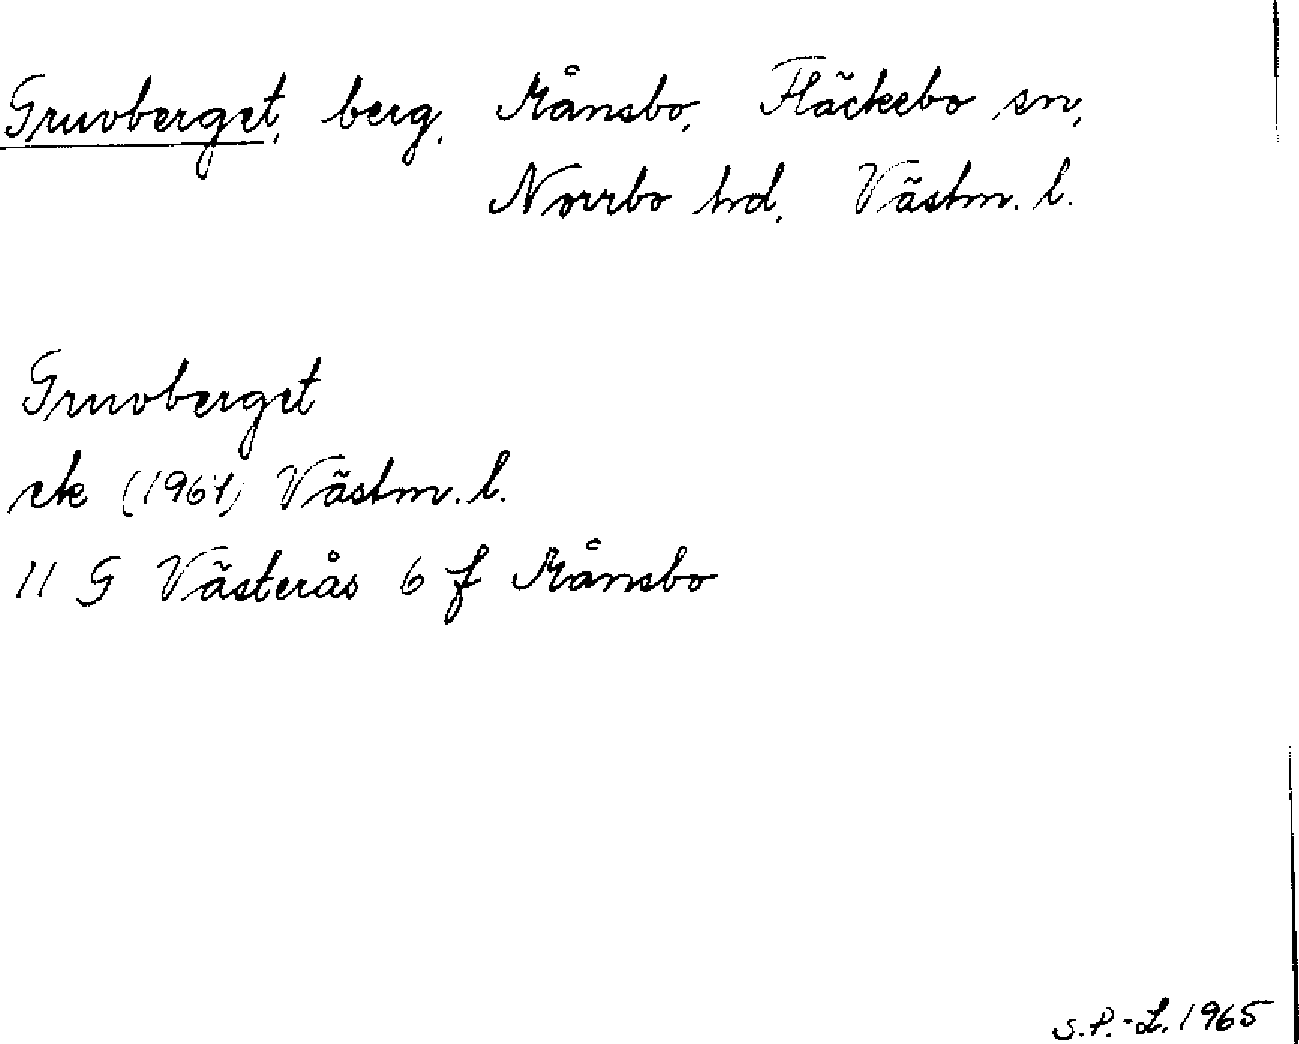 Gruvberget, berg, Månsbo, Fläckebo sn,
Norrbo hd, Västm. l.
Gruvberget
ek (1964) Västm. l.
11 G Västerås 6 f Månsbo
S.P.-L. 1965